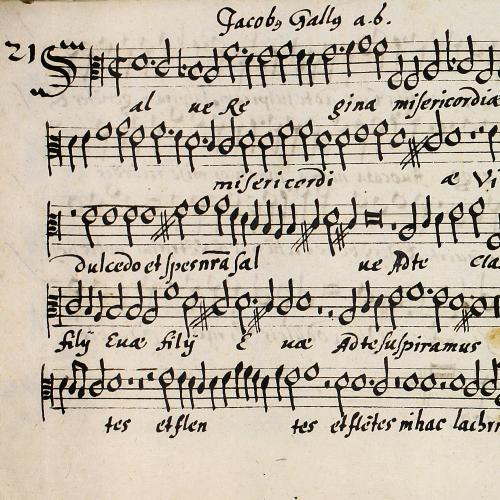 Jacobꝰ Gallꝰ a.6.
21 Sal ue Re gina misericordiæ
misericordi æ Vi
dulcedo et spes nr̄a sal ue Ad te cla
filij Euæ filij E uæ Ad te suspiramus
tes et flen tes et flētes in hac lachri